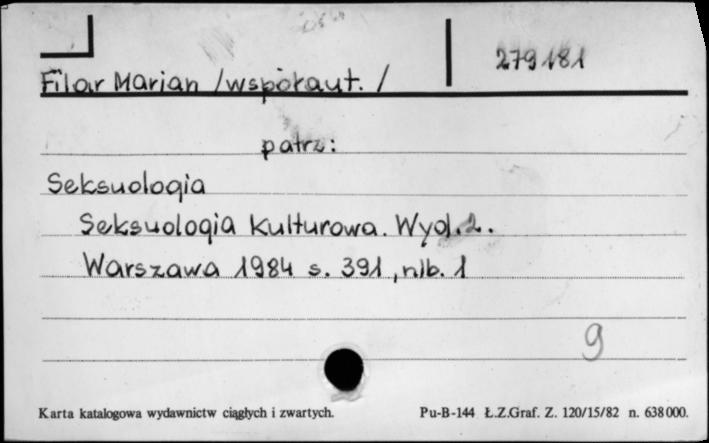 279181
Filar Marian /współaut. /
patrz:
Seksuologia
Seksuologia kulturowa. Wyd. 2.
Warszawa 1984 s. 391, nlb. 1
9
Karta katalogowa wydawnictw ciągłych i zwartych. Pu-B-144 Ł.Z.Graf. Z. 120/15/82 n. 638000.